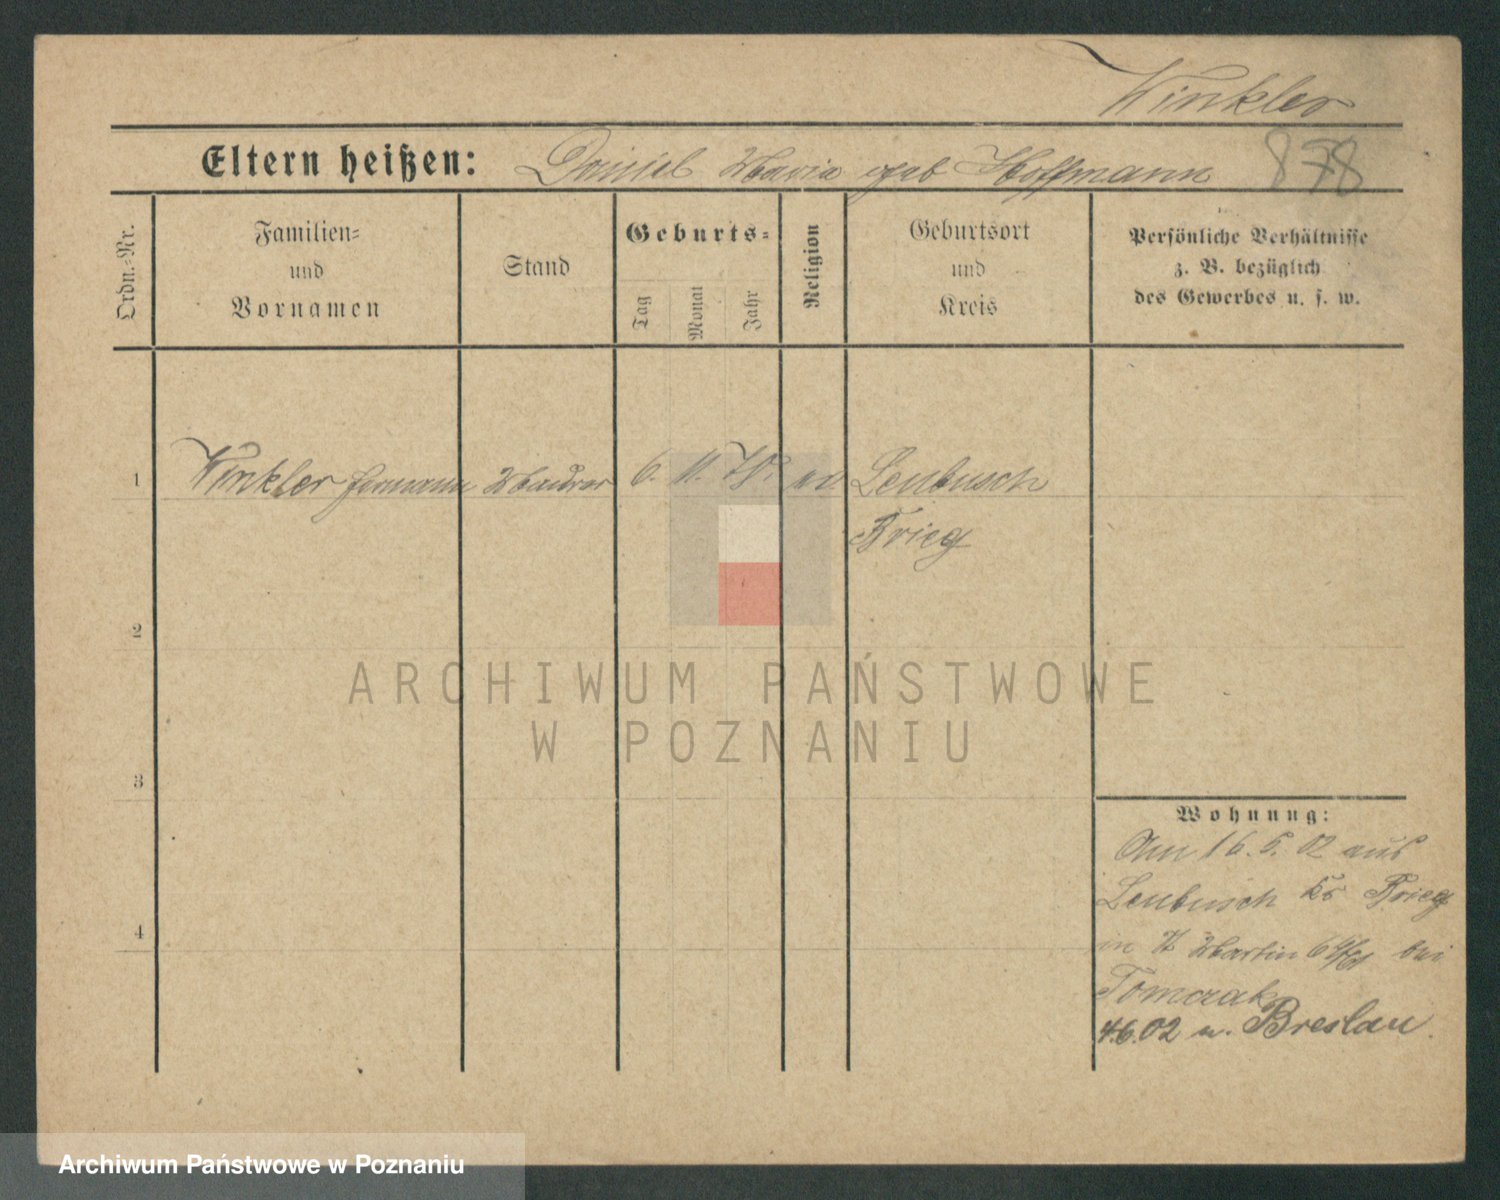 Winkler
Eltern heißen: Daniel Maria geb Hoffmann 878
Ordn.-Nr.
Familien-
und
Vornamen
Stand
Geburts-
Tag
Monat
Jahr
Religion
Geburtsort
und
Kreis
Persönliche Verhältnisse
z. B. bezüglich
des Gewerbes u. s. w.
1 Winkler Hermann Maurer 6. 11. 79. ev Leubusch
Brieg
2
3
4
Wohnung:
Am 16. 5. 02 aus
Leubusch Kr Brieg
in St Martin bei
Tomczak
4.6.02 n. Breslau.
ARCHIWUM PAŃSTWOWE
W POZNANIU
Archiwum Państwowe w Poznaniu